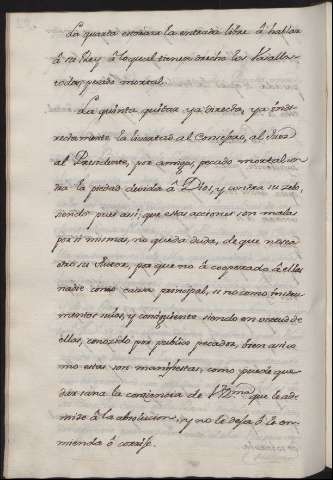 La quarta estorvar la entrada libre à hablar
à su Rey à lo qual tienen drecho los Vasallos
todos, pecado mortal.
La quinta quitar, ya directa, ya indi-
rectamente la livertad al Consejero, al Juez
al Presidente, por amigo, pecado mortal con
tra la piedad devida à Dios, y contra su zelo,
siendo pues asi, que estas acciones son malas
por si mismas, no queda duda, de que no sea
su Autor, por que no à cooperado à ellas
nadie como causa principal, si no como instru
mentos solos, y consiguiente siendo en virtud de
ellas, conozido por publico pecador, bien asi co
mo estas son manifiestas, como puede que
dar sana la conciencia de V. que le ad
mite à la absolucion, y no le deja ò le en
mienda ò corrije.